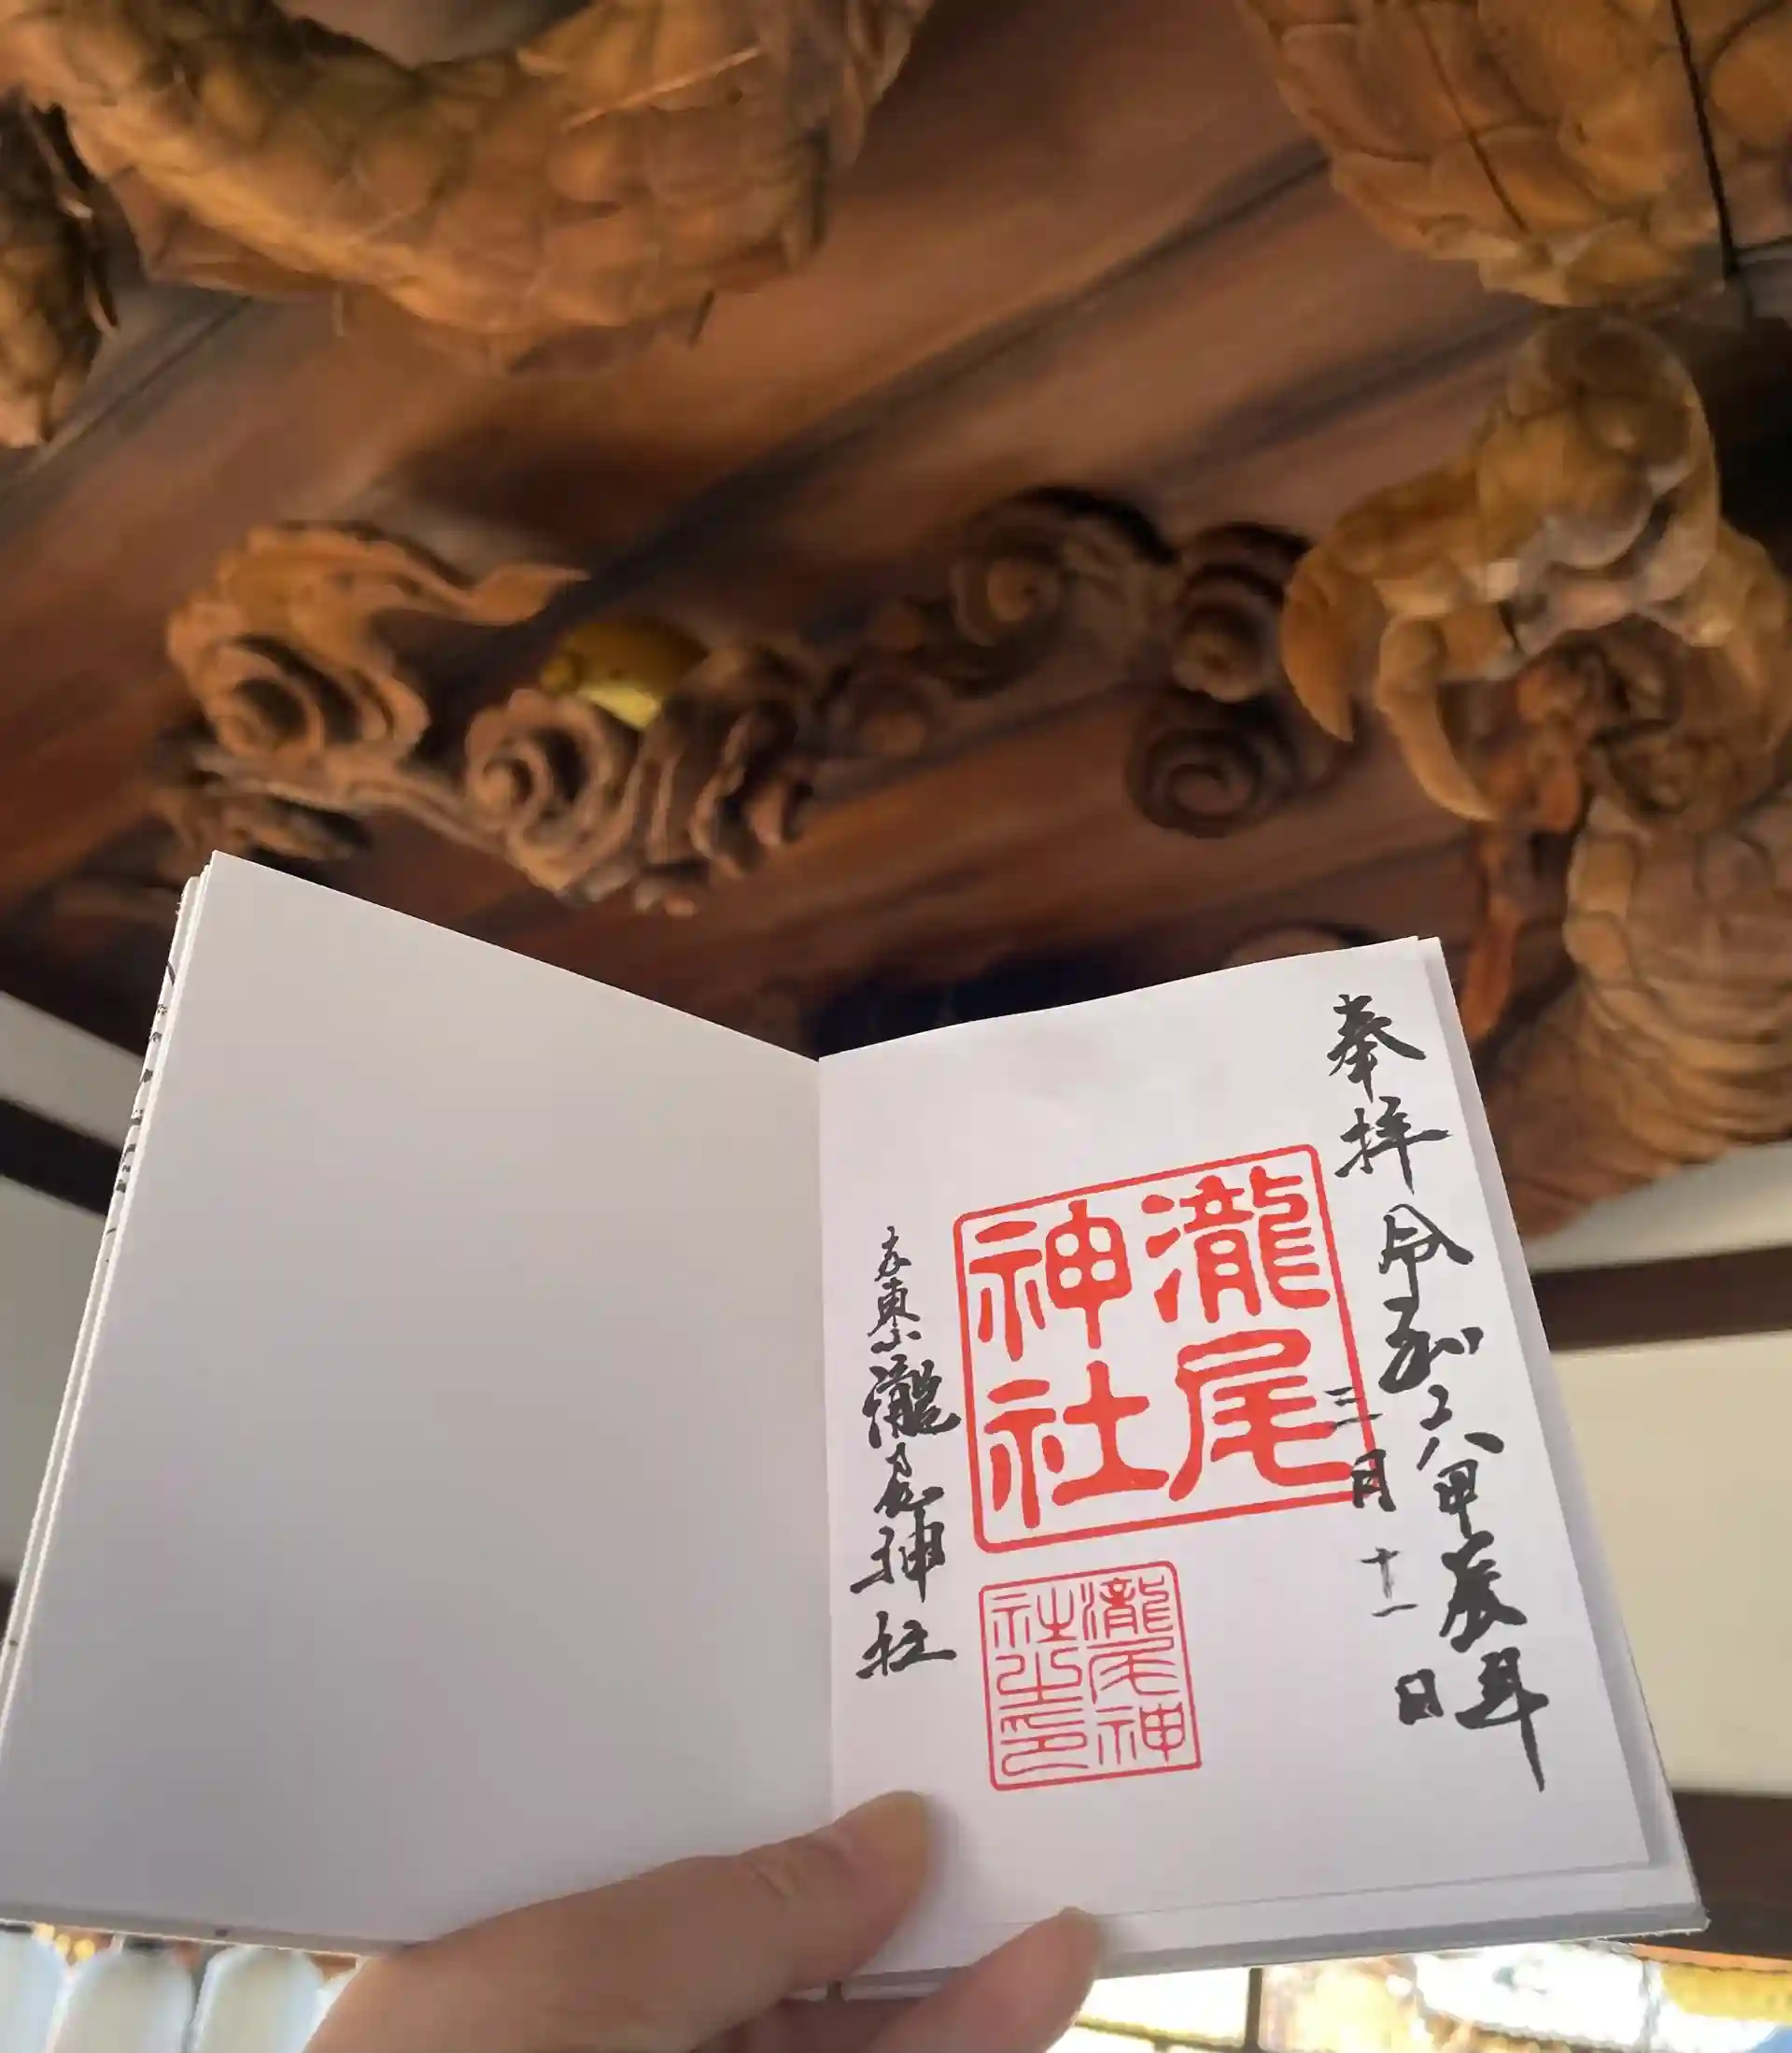 奉拝
令和六甲辰年
三月十一日
瀧尾
神社
瀧尾神
社之印
洛東 瀧尾神社